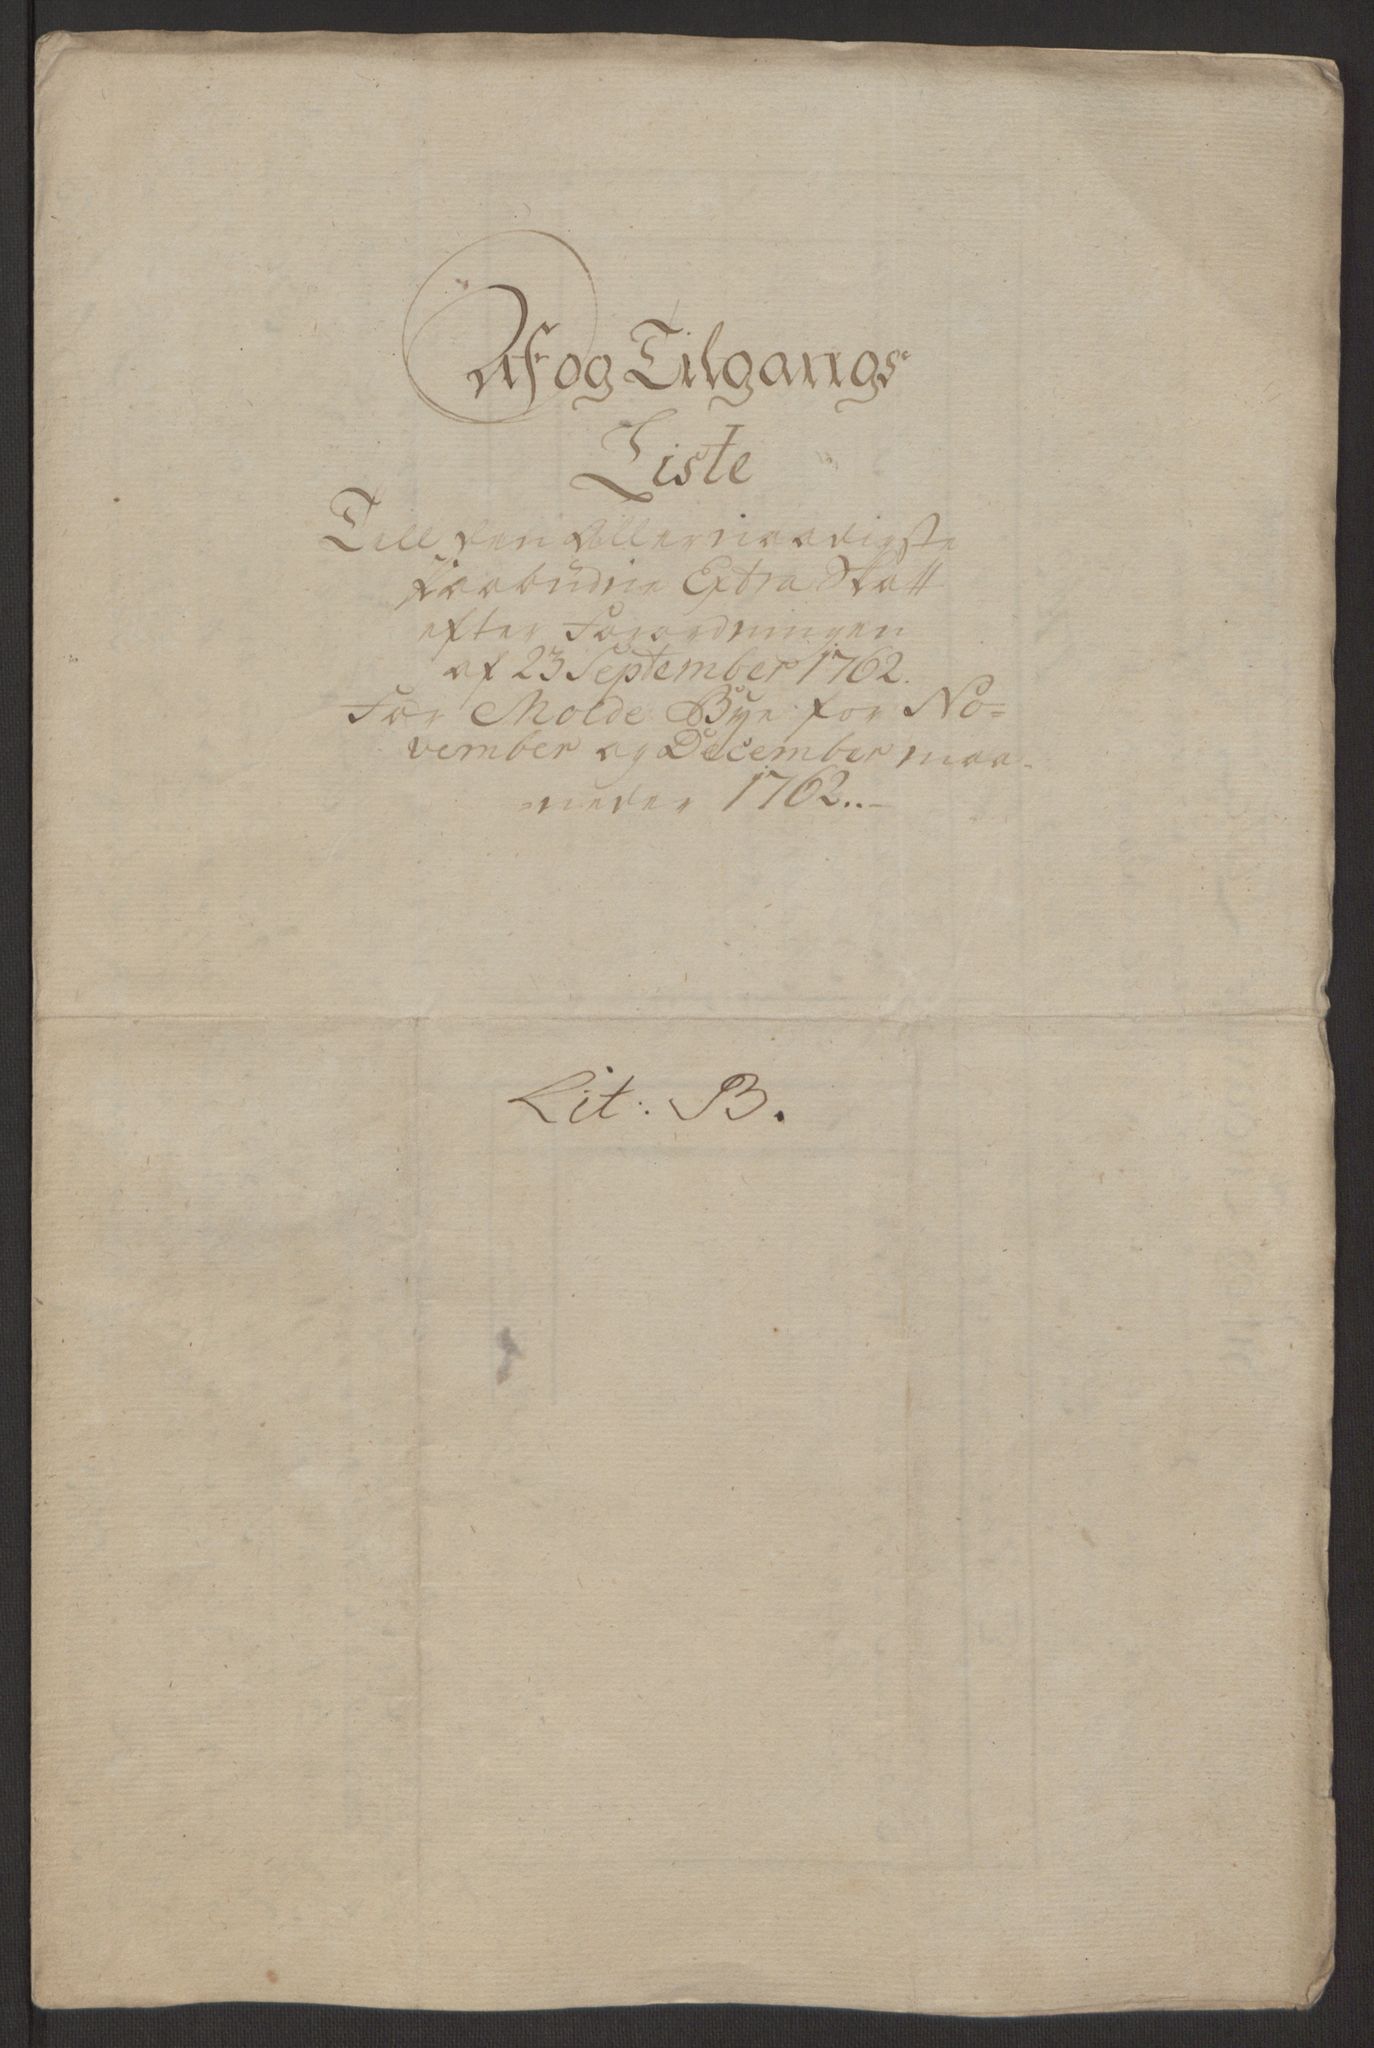 Af og Tilgangs
Liste
Till den Allernaadigste
paabudne Extra Skatt
efter Forordningen
af 23 September 1762.
For Molde Bye for No=
vember og December maa-
=neder 1762..-
Lit: B.